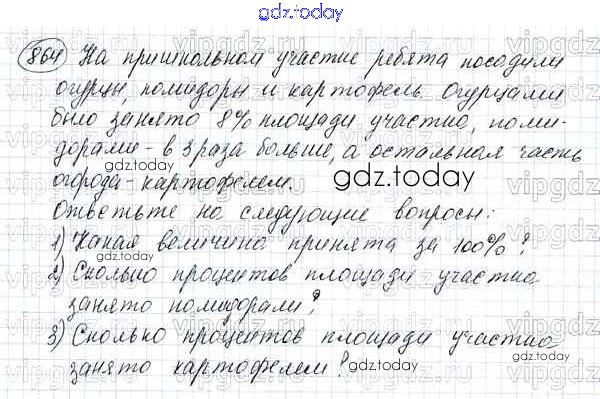 gdz.today
864 На пришкольном участке ребята посадили
огурцы, помидоры и картофель. Огурцами
было занято 8% площади участка, поми-
дорами - в 3 раза больше, а остальная часть
огорода - картофелем.
gdz.today
gdz.today
Ответьте на следующие вопросы:
1) Какая величина принята за 100%?
gdz.today
2) Сколько процентов площади участка
занято помидорами?
3) Сколько процентов площади участка
gdz.today
занято картофелем?
gdz.today